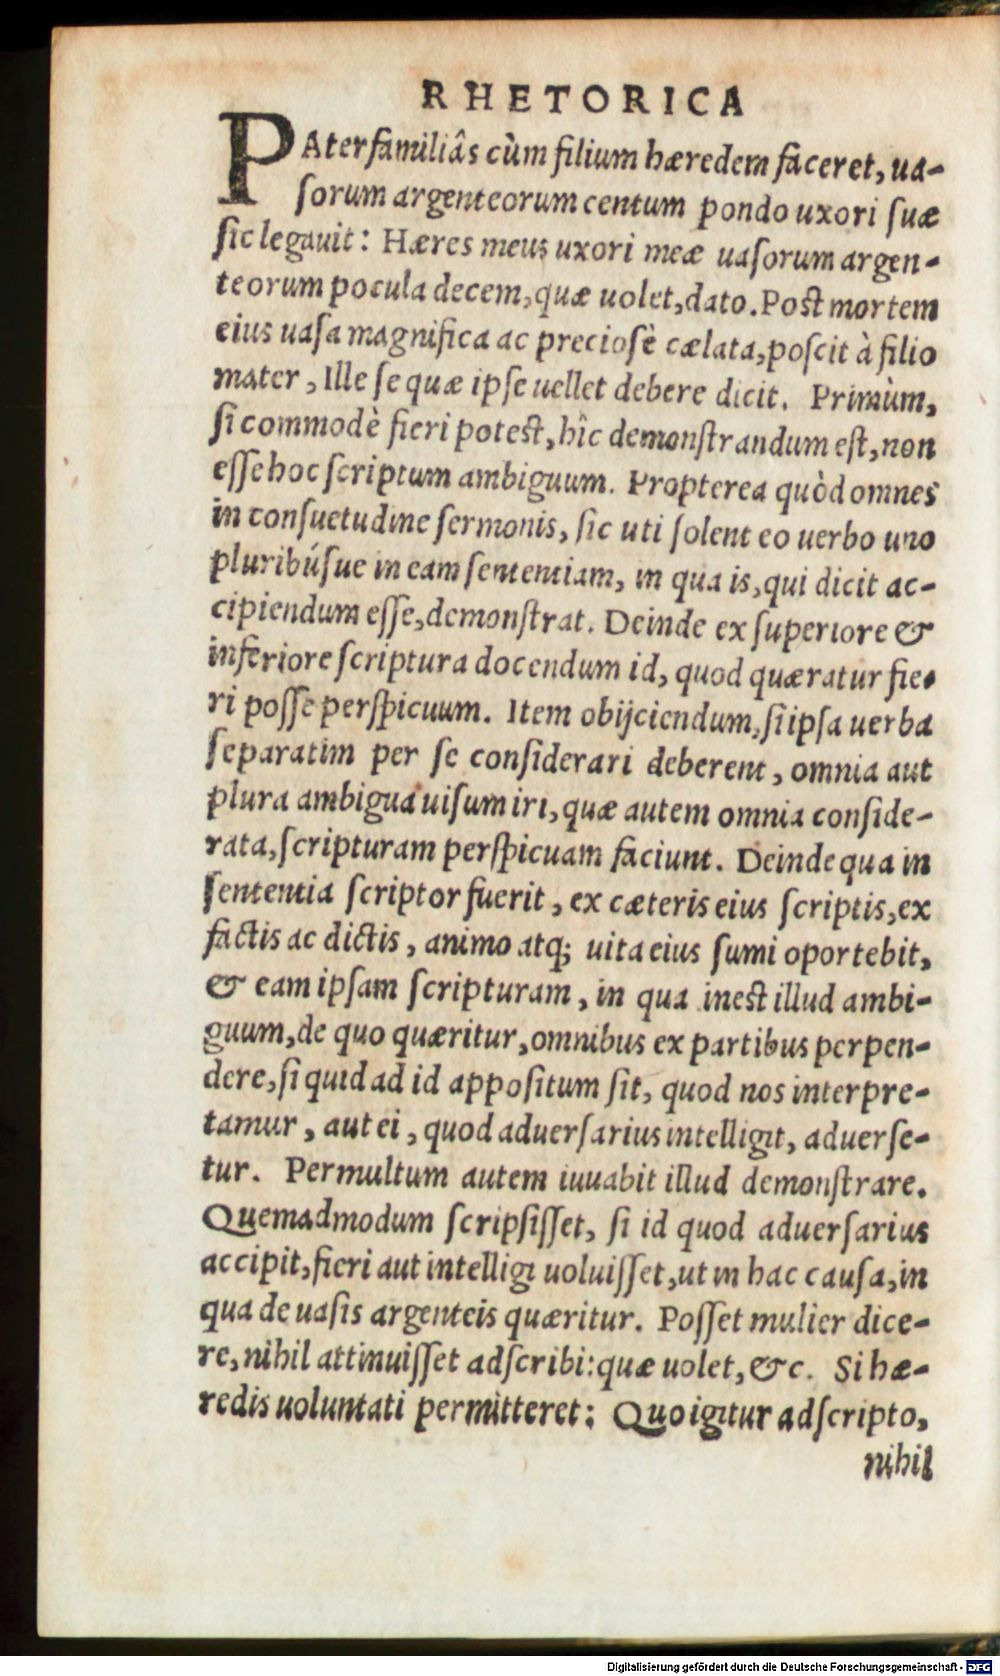 RHETORICA
PAterfamiliâs cùm filium hæredem faceret, ua-
ſorum argenteorum centum pondo uxori ſuæ
ſic legauit: Hæres meus uxori meæ uaſorum argen-
teorum pocula decem, quæ uolet, dato. Post mortem
eius uaſa magnifica ac preciosè cælata, poſcit à filio
mater, Ille ſe quæ ipſe uellet debere dicit. Primùm,
ſi commodè fieri potest, hîc demonſtrandum eſt, non
eſſe hoc ſcriptum ambiguum. Propterea quòd omnes
in conſuetudine ſermonis, ſic uti ſolent eo uerbo uno
pluribúſue in eam ſententiam, in qua is, qui dicit ac-
cipiendum eſſe, demonſtrat. Deinde ex ſuperiore &
inferiore ſcriptura docendum id, quod quæratur fie-
ri poſſe perſpicuum. Item obijciendum, ſi ipſa uerba
ſeparatim per ſe conſiderari deberent, omnia aut
plura ambigua uiſum iri, quæ autem omnia conſide-
rata, ſcripturam perſpicuam faciunt. Deinde qua in
ſententia ſcriptor fuerit, ex cæteris eius ſcriptis, ex
factis ac dictis, animo atq; uita eius ſumi oportebit,
& eam ipſam ſcripturam, in qua inest illud ambi-
guum, de quo quæritur, omnibus ex partibus perpen-
dere, ſi quid ad id appoſitum ſit, quod nos interpre-
tamur, aut ei, quod aduerſarius intelligit, aduerſe-
tur. Permultum autem iuuabit illud demonſtrare.
Quemadmodum ſcripſiſſet, ſi id quod aduerſarius
accipit, fieri aut intelligi uoluiſſet, ut in hac cauſa, in
qua de uaſis argenteis quæritur. Poſſet mulier dice-
re, nihil attinuiſſet adſcribi: quæ uolet, &c. Si hæ-
redis uoluntati permitteret: Quo igitur adſcripto,
nihil
Digitalisierung gefördert durch die Deutsche Forschungsgemeinschaft - DFG